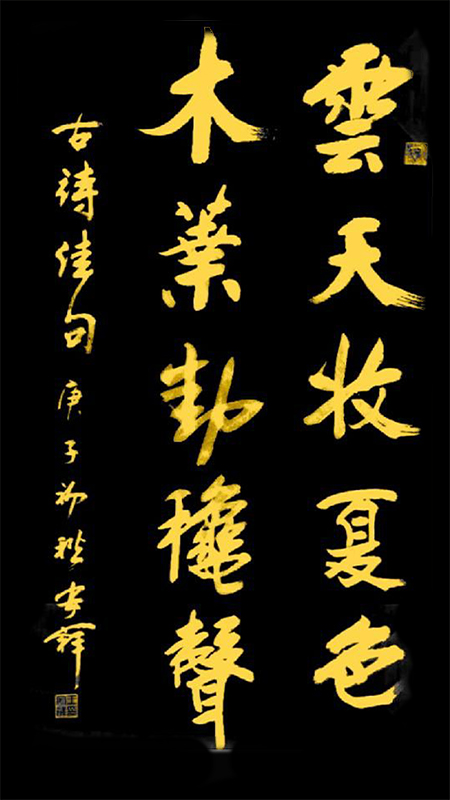 雲天收夏色
木葉動穐聲
古詩佳句 庚子初秋